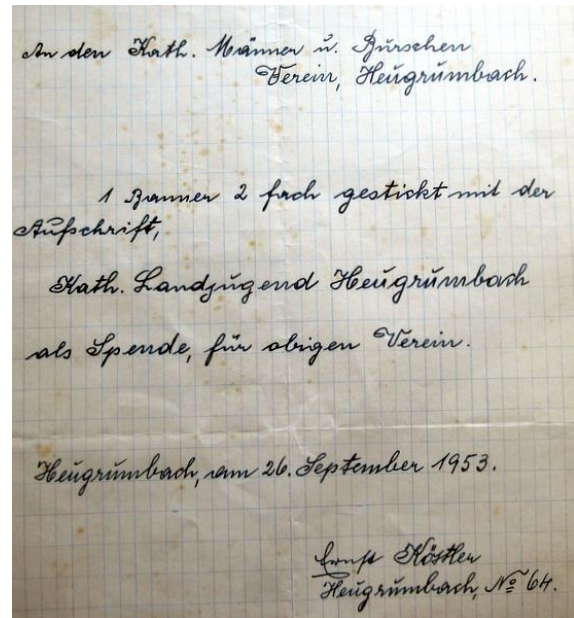 An den Kath. Männer u. Burschen
Verein, Heugrumbach.
1 Banner 2 fach gestickt mit der
Aufschrift,
Kath. Landjugend Heugrumbach
als Spende, für obigen Verein.
Heugrumbach, am 26. September 1953.
Ernst Köstler
Heugrumbach, No 64.